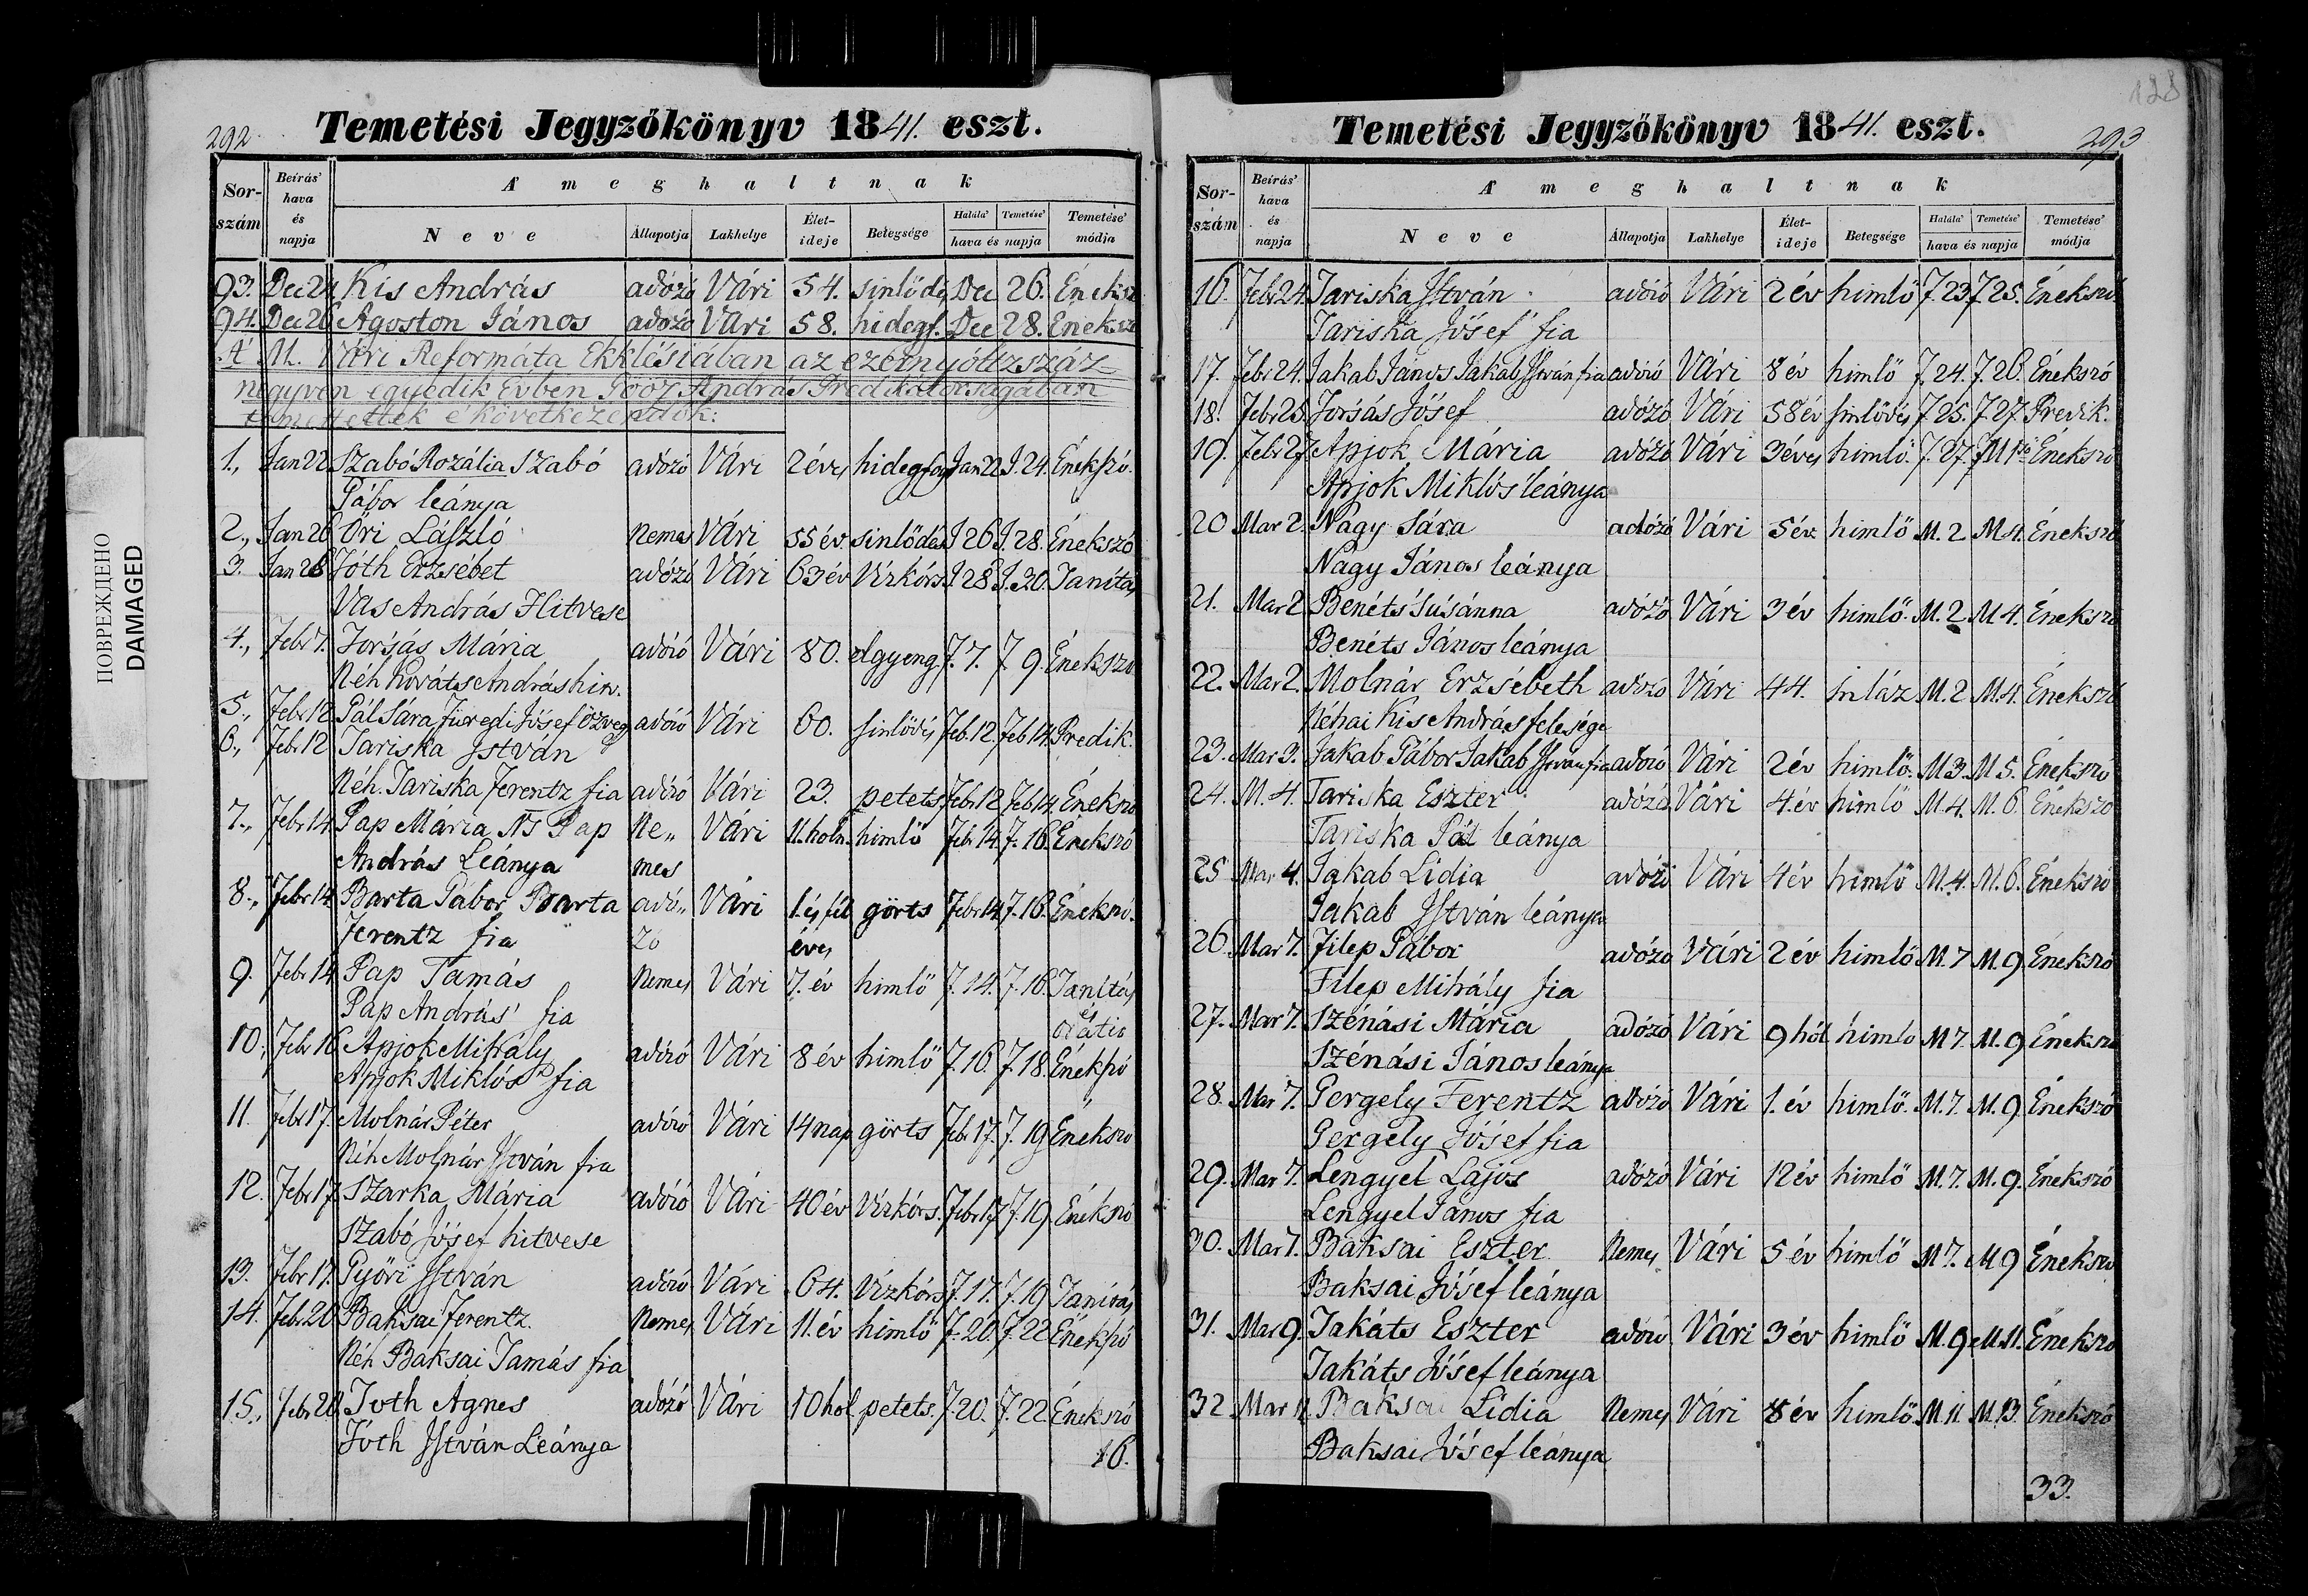 128
292.
Temetési Jegyzőkönyv 1841. eszt.
Sor-szám
Beírás' hava és napja
A' meghaltnak
Neve
Állapotja
Lakhelye
Élet-ideje
Betegsége
Halála'
Temetése'
hava és napja
Temetése' módja
93. Dec 24 Kis András adózó Vári 54. sinlődés Dec 26. Éneksz
94. Dec 26 Ágoston János adózó Vári 58. hidegf. Dec 28. Éneksz
A' M. Vári Reformáta Ekklésiában az ezernyóltzszáz
negyven egyedik Évben Soóz András Preditátorságában
temettettek é következendők:
1., Jan 22 Szabó Rozália Szabó adózó Vári 2 éves hidegség Jan 22 J. 24. Énekszó.
Gábor leánya
2., Jan 26 Őri László Nemes Vári 55 év. sinlődés J 26 J. 28. Énekszó
3. Jan 28 Tóth Erzsébet adózó Vári 63 év Vízkórs. J 28 J. 30. Tanítás
Vas András Hitvese
4., Febr 7. Forsás Mária adózó Vári 80. elgyeng F. 7. F. 9. Énekszó
Néh Kováts András hitv.
5., Febr 12 Pál Sára Füredi Jósef özvegy adózó Vári 60. sinlődés Feb. 12. Feb 14. Predik.
6., Febr 12 Tariska István
Néh. Tariska Ferentz fia adózó Vári 23. petets Febr 12 Feb 14 Énekszó
7., Febr 14 Pap Mária NS Pap Ne„ Vári 11. holn. himlő Febr 14. F. 16. Énekszó
András Leánya mes
8., Febr 14 Barta Gábor Barta adó„ Vári 1. és fél görts Febr 14. F. 16. Énekszó.
Ferentz fia zó éves
9. Febr 14 Pap Tamás Nemes Vári 7. év himlő F. 14. F. 16. Tanítás
Pap András' fia és oratio
10., Febr 16 Apjok Mihály adózó Vári 8 év himlő F. 16. F. 18. Énekszó
Apjok Miklós fia
11. Febr 17. Molnár Péter adózó Vári 14 nap görts Febr 17. F. 19 Énekszó
Néh Molnár István fia
12. Febr 17 Szarka Mária adózó Vári 40 év Vízkórs. Febr 17 F. 19. Énekszó
Szabó Jósef hitvese
13. Febr 17. Győri István adózó Vári 64. Vízkórs F. 17. F. 19 Tanítás
14. Febr 20 Baksai Ferentz. Nemes Vári 11. év himlő F. 20. F. 22 Énekszó
Néh Baksai Tamás fia
15., Febr 20 Tóth Ágnes adózó Vári 10 hol petets. F 20. F. 22. Énekszó
Tóth István Leánya
16.
293
Temetési Jegyzőkönyv 1841. eszt.
Sor-szám
Beírás' hava és napja
A' meghaltnak
Neve
Állapotja
Lakhelye
Élet-ideje
Betegsége
Halála'
Temetése'
hava és napja
Temetése' módja
16. Febr 24. Tariska István adózó Vári 2 év himlő F. 23 F 25. Énekszó
Tariska Jósef fia
17. Febr 24. Jakab János Jakab István fia adózó Vári 8 év himlő F. 24. F. 26. Énekszó
18. Febr 25 Forsás Jósef adózó Vári 58 év sinlődés F 25. F. 27. Predik.
19. Febr 27 Apjok Mária adózó Vári 3 éves himlő. F. 27. M 1ső Énekszó
Apjok Miklós leánya
20 Mar 2. Nagy Sára adózó Vári 5 év. himlő M. 2 M 4. Énekszó
Nagy János leánya
21. Mar 2. Benéts Susánna adózó Vári 3 év himlő. M. 2 M 4. Énekszó
Benéts János leánya
22. Mar 2. Molnár Erzsébeth adózó Vári 44. inláz M. 2 M. 4. Énekszó
Néhai Kis András felesége
23. Mar 3. Jakab Gábor Jakab István fia adózó Vári 2 év himlő. M 3. M 5. Énekszó
24. M. 4. Tariska Eszter adózó Vári 4. év himlő M. 4. M. 6. Énekszó
Tariska Pál leánya
25 Mar 4. Jakab Lídia adózó Vári 4 év himlő M. 4. M. 6. Énekszó
Jakab István leánya
26. Mar 7. Filep Gábor adózó Vári 2 év himlő M. 7 M. 9. Énekszó
Filep Mihály fia
27. Mar 7. Szénási Mária adózó Vári 9 hól himlő M 7. M. 9 Énekszó
Szénási János leánya
28. Mar 7. Gergely Ferentz adózó Vári 1. év himlő. M. 7. M. 9. Énekszó
Gergely Jósef fia
29. Mar 7. Lengyel Lajos adózó Vári 12 év himlő M. 7. M. 9. Énekszó
Lengyel János fia
30. Mar 7. Baksai Eszter Nemes Vári 5 év himlő M 7. M 9 Énekszó
Baksai Jósef leánya
31. Mar 9. Takáts Eszter adózó Vári 3 év himlő M. 9 M. 11. Énekszó
Takáts Jósef leánya
32 Mar 11 Baksai Lídia Nemes Vári 8 év himlő M. 11 M. 13. Énekszó
Baksai Jósef leánya
33.
ПОВРЕЖДЕНО
DAMAGED